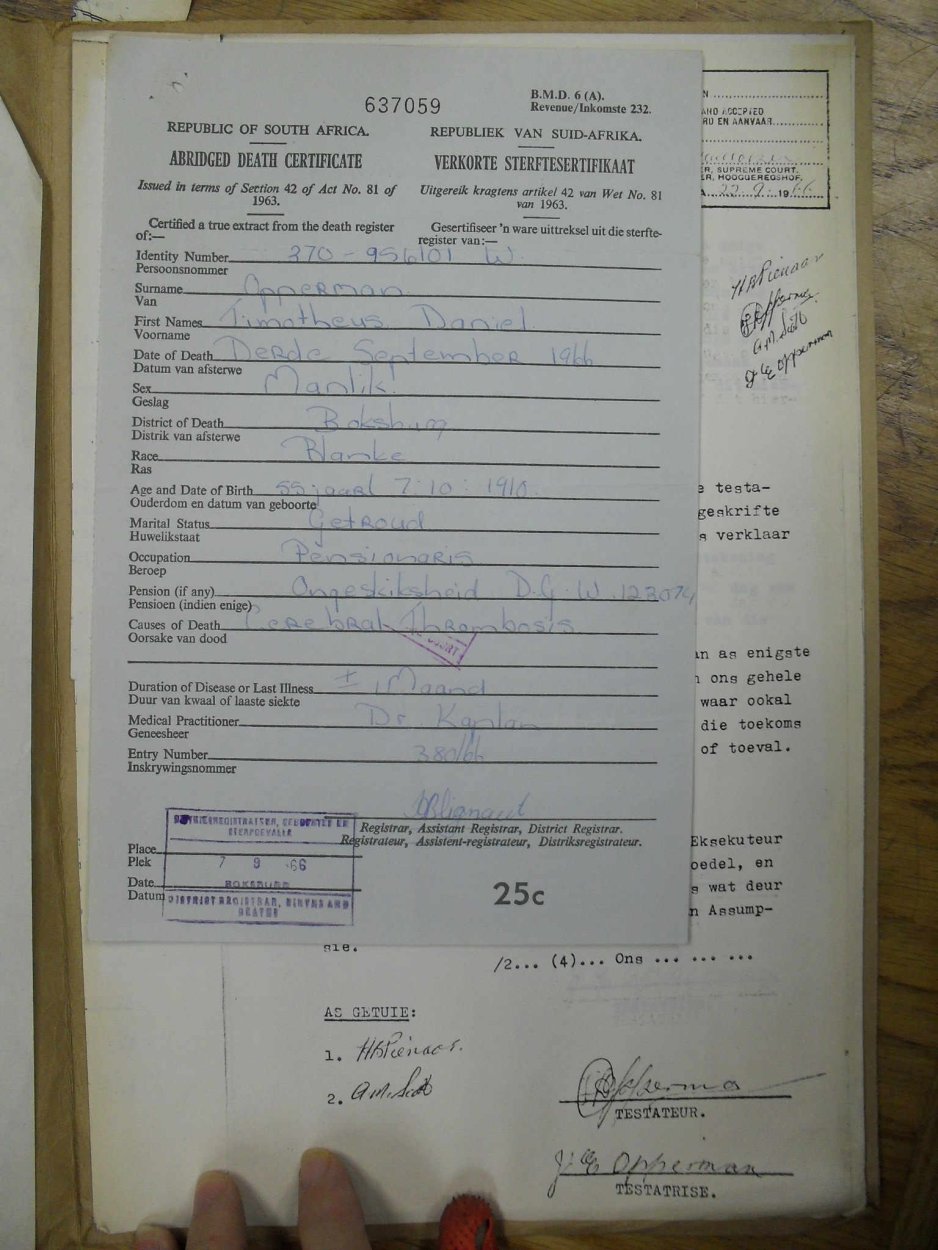 637059
B.M.D. 6 (A).
Revenue/Inkomste 232.
REPUBLIC OF SOUTH AFRICA.
REPUBLIEK VAN SUID-AFRIKA.
ABRIDGED DEATH CERTIFICATE
VERKORTE STERFTESERTIFIKAAT
Issued in terms of Section 42 of Act No. 81 of
1963.
Uitgereik kragtens artikel 42 van Wet No. 81
van 1963.
Certified a true extract from the death register
of:—
Gesertifiseer 'n ware uittreksel uit die sterfte-
register van:—
Identity Number 370-956101 W.
Persoonsnommer
Surname Opperman
Van
First Names Timotheus Daniel
Voorname
Date of Death Derde September 1966
Datum van afsterwe
Sex Manlik
Geslag
District of Death Boksburg
Distrik van afsterwe
Race Blanke
Ras
Age and Date of Birth 55 jaar 7:10:1910
Ouderdom en datum van geboorte
Marital Status Getroud
Huwelikstaat
Occupation Pensionaris
Beroep
Pension (if any) Ongeskiksheid D.G.W.
Pensioen (indien enige)
Causes of Death Cerebral Thrombosis
Oorsake van dood
Duration of Disease or Last Illness ± 1 Maand
Duur van kwaal of laaste siekte
Medical Practitioner Dr. Kaplan
Geneesheer
Entry Number 380/66
Inskrywingsnommer
Registrar, Assistant Registrar, District Registrar.
Registrateur, Assistent-registrateur, Distriksregistrateur.
DISTRIKREGISTRATEUR, GEBOORTES EN
STERFGEVALLE
Place
Plek
7 9 -66
Date
BOKSBURG
Datum
DISTRICT REGISTRAR, BIRTHS AND
DEATHS
25c
AND ACCEPTED
EN AANVAAR
SUPREME COURT.
HOOGGEREGSHOF.
22-9-1966
HBPienaar
Opperman
A.M. Scott
Opperman
e testa-
geskrifte
s verklaar
an as enigste
ons gehele
waar ookal
die toekoms
of toeval.
Eksekuteur
oedel, en
s wat deur
n Assump-
sie.
/2... (4)... Ons ... ... ...
AS GETUIE:
1. HBPienaar.
2. A.M. Scott
Opperman
TESTATEUR.
Opperman
TESTATRISE.